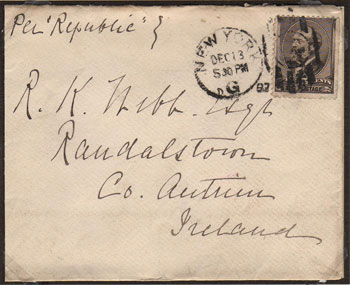 Per "Republic"
NEW YORK
DEC 13
530 PM
G
87
R. K. Webb. Esqr
Randalstown
Co. Antrim
Ireland